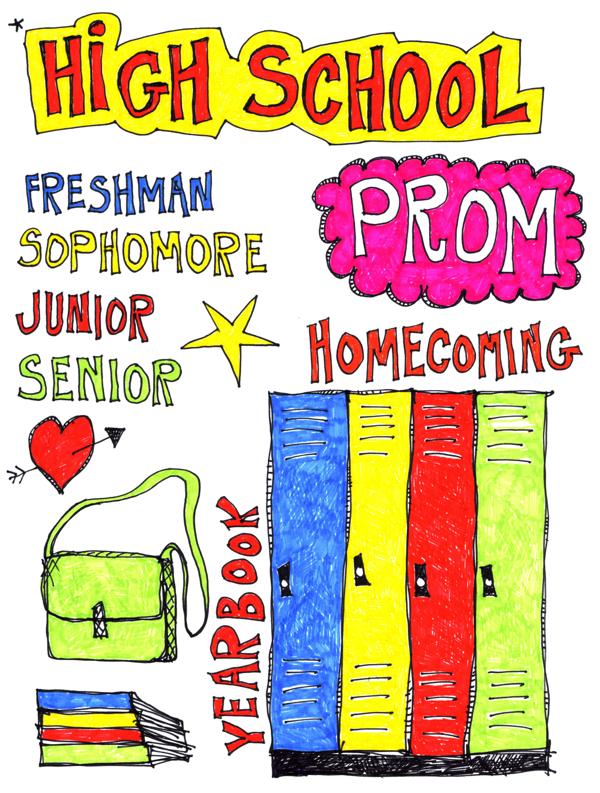 HiGH SCHOOL
FRESHMAN
SOPHOMORE
JUNIOR
SENIOR
PROM
HOMECOMING
YEARBOOK